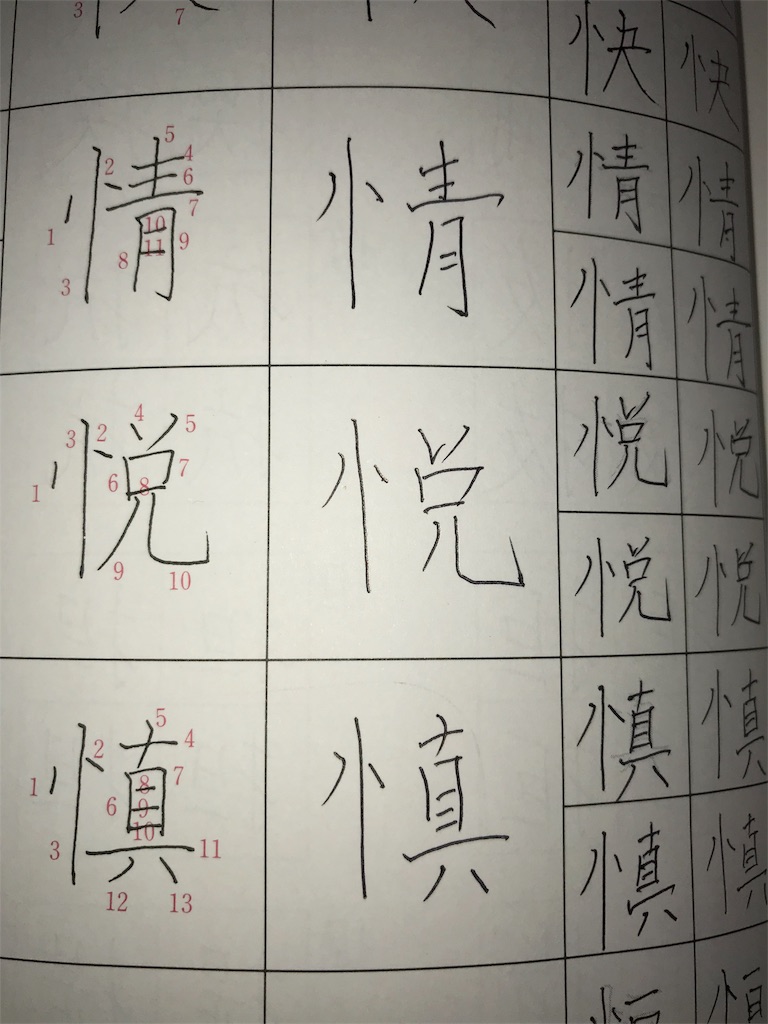 快 快
情 情 情 情
情 情
悦 悦 悦 悦
悦 悦
慎 慎 慎 慎
慎 慎
3 7
5 4 2 6 7 10 11 9 1 8 3
4 5 3 2 7 6 8 1 9 10
5 4 2 1 7 8 6 9 10 3 11 12 13